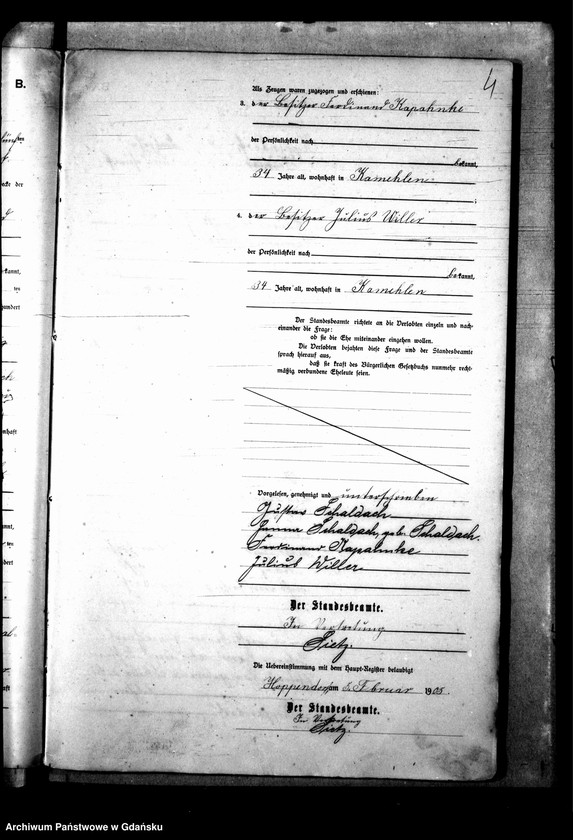 B.
4
Als Zeugen waren zugezogen und erschienen:
3. der Besitzer Ferdinand Kapahnke
der Persönlichkeit nach
bekannt,
34 Jahre alt, wohnhaft in Kamehlen
;
4. der Besitzer Julius Willer
der Persönlichkeit nach
bekannt,
34 Jahre alt, wohnhaft in Kamehlen
Der Standesbeamte richtete an die Verlobten einzeln und nach-
einander die Frage:
ob sie die Ehe miteinander eingehen wollen.
Die Verlobten bejahten diese Frage und der Standesbeamte
sprach hierauf aus,
daß sie kraft des Bürgerlichen Gesetzbuchs nunmehr recht-
mäßig verbundene Eheleute seien.
Vorgelesen, genehmigt und unterschrieben
Gustav Schaldach
Schaldach, geb. Schaldach.
Ferdinand Kapahnke
Julius Willer
Der Standesbeamte.
In Vertretung
Die Uebereinstimmung mit dem Haupt-Register beglaubigt
Hoppendorf am 5. Februar 1905.
Der Standesbeamte.
In Vertretung
Archiwum Państwowe w Gdańsku